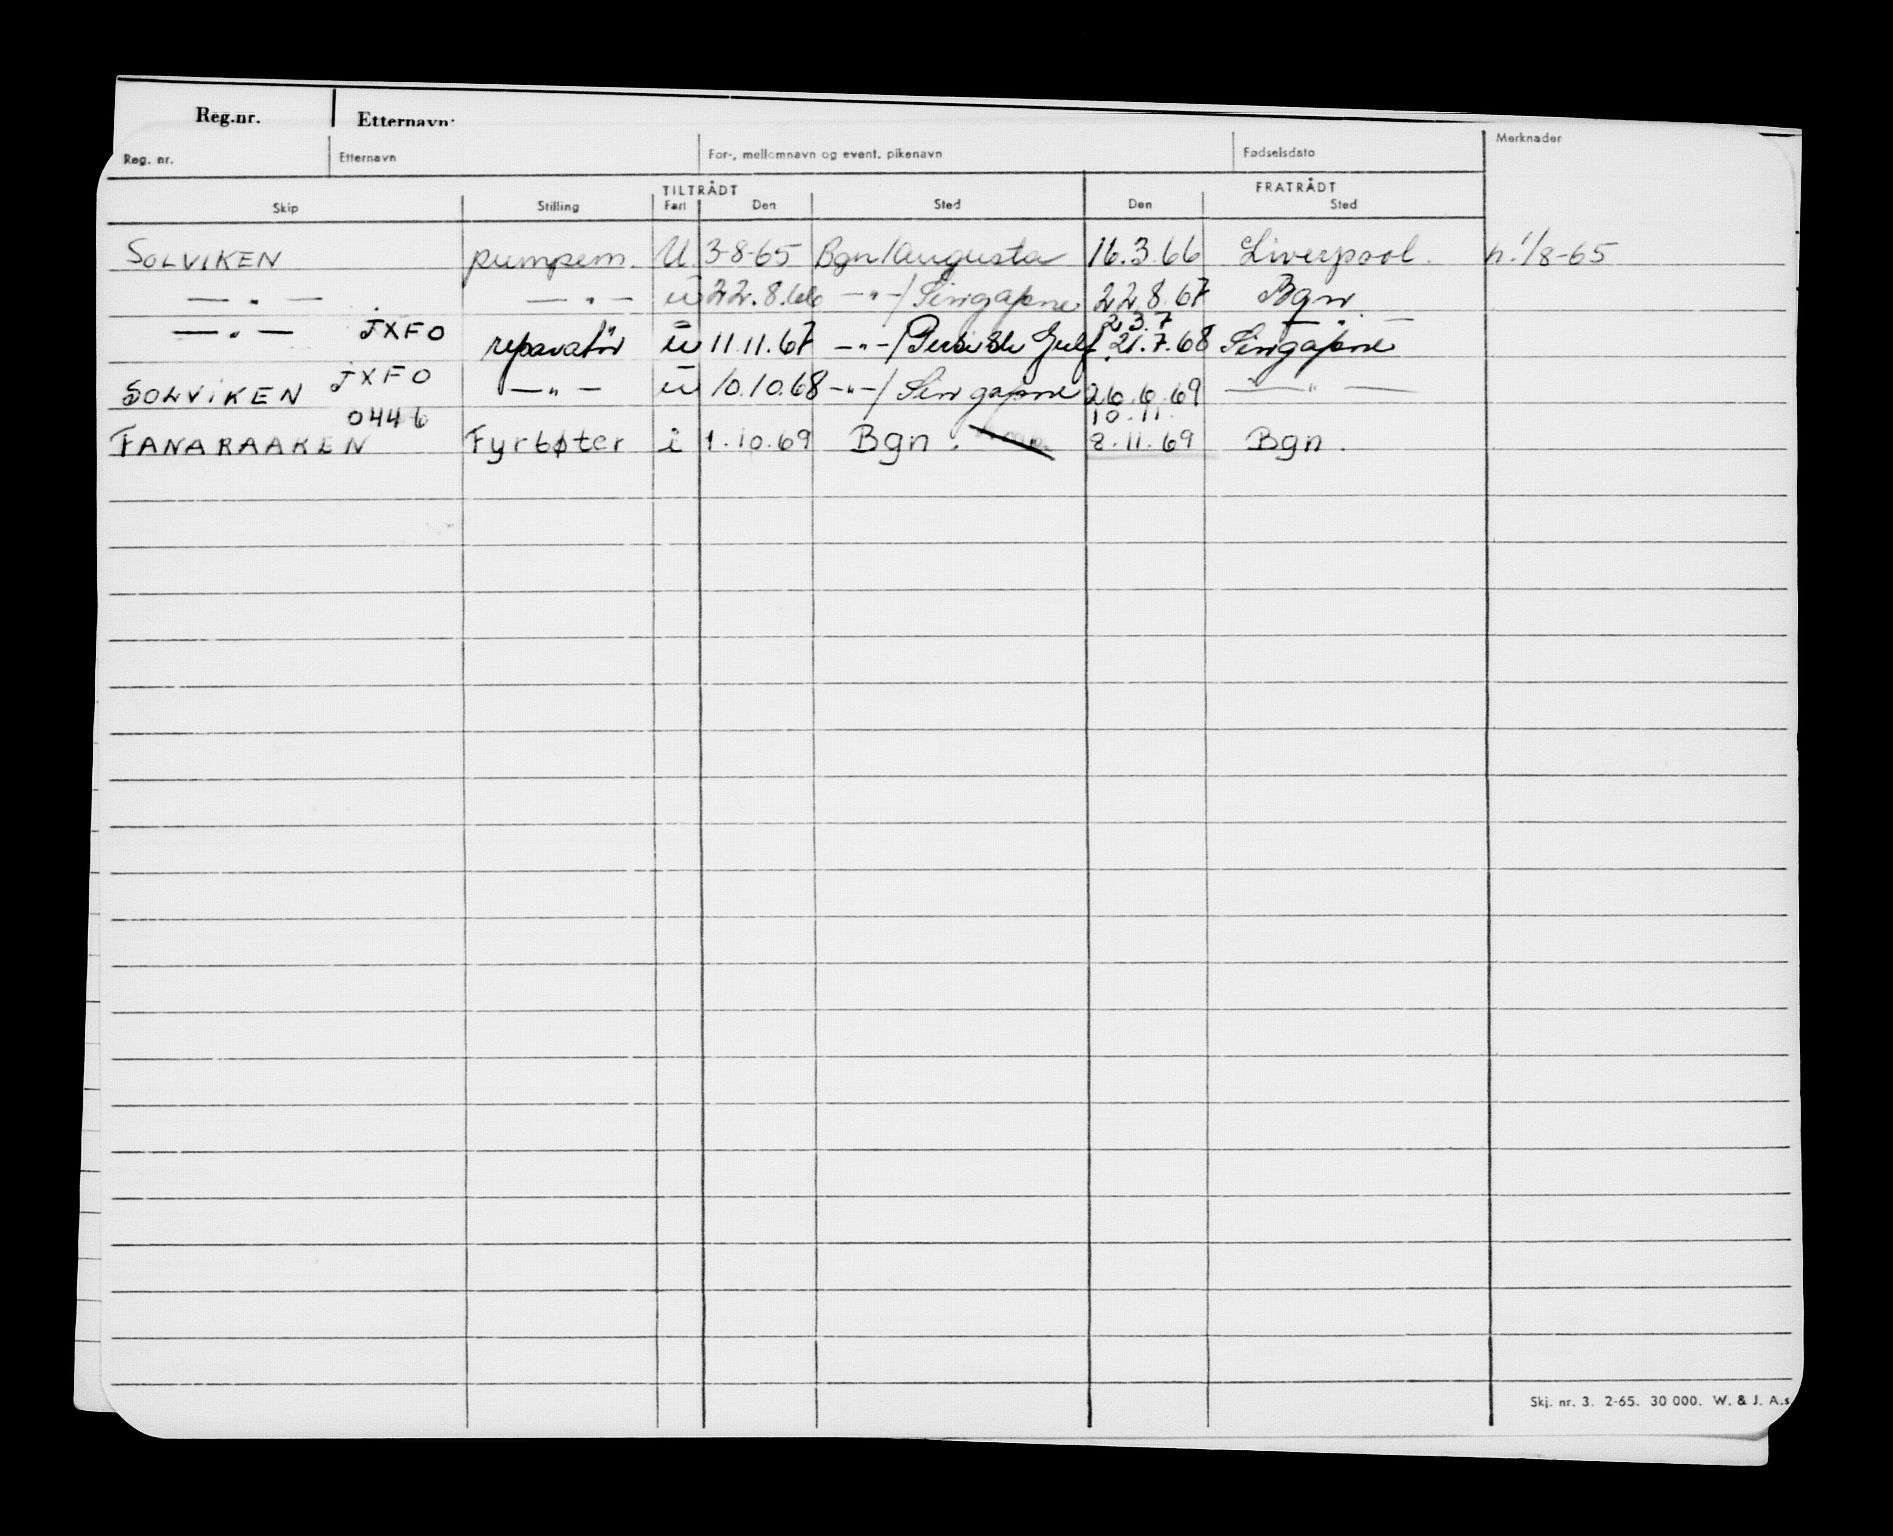 Reg.nr. Etternavn:
Reg. nr. Etternavn For-, mellomnavn og event. pikenavn Fødselsdato Merknader
TILTRÅDT FRATRÅDT
Skip Stilling Fart Den Sted Den Sted
SOLVIKEN pumpem. U 3-8-65 Bgn/Augusta 16.3.66 Liverpool. h. 1/8-65
— " — — " — u 22.8.66 — " —/Singapore 22.8.67 Bgn
23.7 — " —
— " — JXFO reparatør u 11.11.67 — " —/Persiske Gulf 21.7.68 Singapore
SOLVIKEN JXFO — " — u 10.10.68 — " —/Singapore 26.6.69 — " —
0446 10.11.
FANARAAKEN Fyrbøter i 1.10.69 Bgn. 8.11.69 Bgn.
Skj. nr. 3. 2-65. 30 000. W. & J. A.s